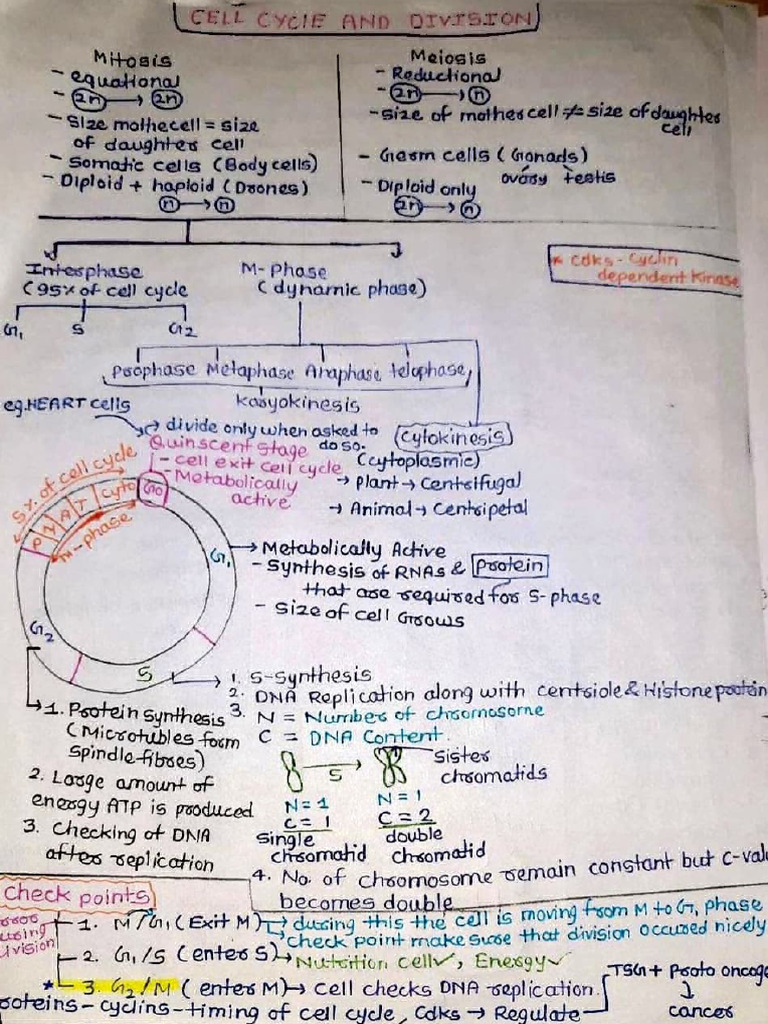 CELL CYCLE AND DIVISION
Mitosis
- equational
- 2n → 2n
- Size mothecell = size
of daughter cell
- Somatic cells (Body cells)
- Diploid + haploid (Drones)
n → n
Meiosis
- Reductional
- 2n → n
- size of mother cell ≠ size of daughter
cell
- Germ cells (Gonads)
ovary testis
- Diploid only
2n → n
* Cdks - Cyclin
dependent Kinase
Interphase
(95% of cell cycle
G1 S G2
M-Phase
(dynamic phase)
Prophase Metaphase Anaphase telophase
karyokinesis
eg. HEART cells
→ divide only when asked to
do so.
Quinscent stage
- cell exit cell cycle
- Metabolically
active
Cytokinesis
(cytoplasmic)
→ Plant → Centrifugal
→ Animal → Centripetal
5% of cell cycle
P M A T Cyto G0
M-phase
G1
G2
S
→ Metabolically Active
- Synthesis of RNAs & protein
that are required for S-phase
- Size of cell Grows
1. S-Synthesis
2. DNA Replication along with centriole & Histone protein
3. N = Number of chromosome
C = DNA Content
S → Sister
chromatids
N = 1 N = 1
C = 1 C = 2
single double
chromatid chromatid
4. No. of chromosome remain constant but C-val
becomes double
→ 1. Protein synthesis
(Microtubles form
spindle fibres)
2. Large amount of
energy ATP is produced
3. Checking of DNA
after replication
Check points
1. M/G1 (Exit M) → during this the cell is moving from M to G1 phase
→ check point make sure that division occured nicely
2. G1/S (enter S) → Nutrition cell✓, Energy✓
* 3. G2/M (enter M) → Cell checks DNA replication.
proteins - cyclins - timing of cell cycle, Cdks → Regulate
TSG + Proto oncog
↓
cancer